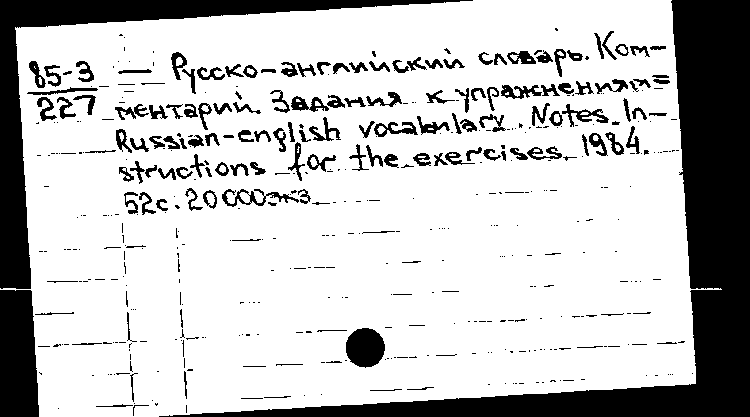 85-3 — Русско-английский словарь. Ком-
227 ментарий. Задания к упражнениям=
Russian-english vocabulary. Notes. In-
structions for the exercises. 1984.
52с. 20000экз.